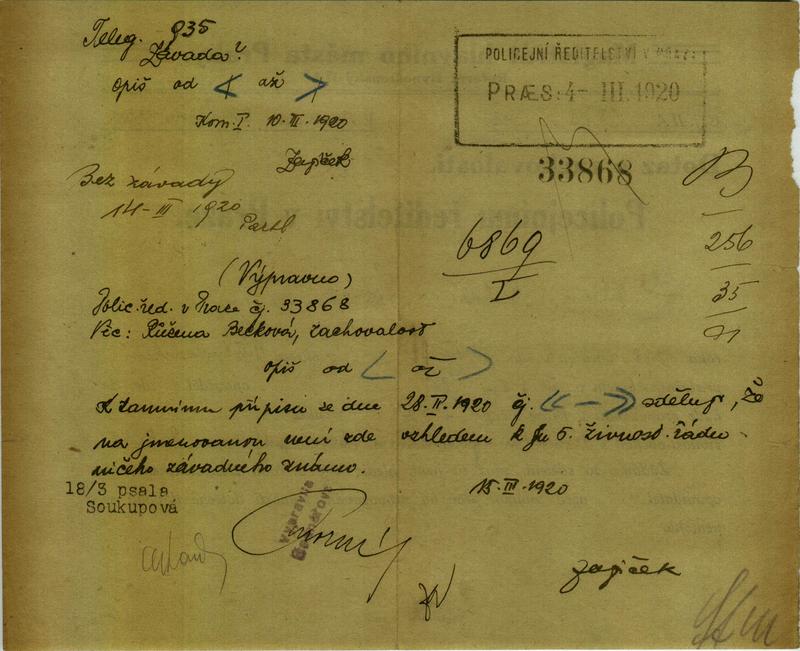 Teleg. 935
Závada?
Opiš od < až >
Kom. I. 10-III-1920
Zajíček
Bez závady
14-III 1920
Partl
POLICEJNÍ ŘEDITELSTVÍ V PRAZE
PRÆS: 4- III. 1920
33868
B
256
35
6869
I
(Výpravno)
Polic. řed. v Praze čj. 33868
Věc: Růžena Becková, zachovalost
Opiš od < až >
K tamnímu přípisu ze dne 28-II-1920 čj. sděluji, že
na jmenovanou není zde vzhledem k §u 5. živnost. řádu
ničeho závadného známo.
18/3 psala
Soukupová
15-III-1920
Vypravila
Zajíček